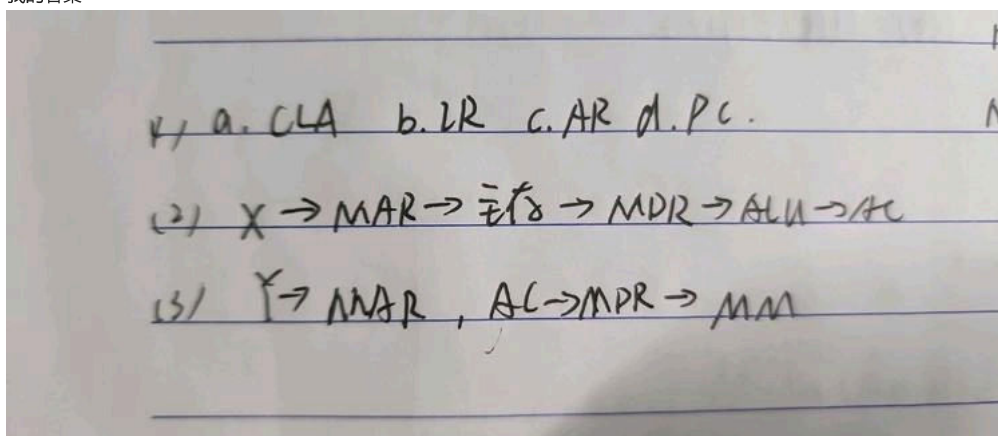 (1) a. CLA b. IR c. AR d. PC.
(2) X → MAR → 主存 → MDR → ALU → AC
(3) Y → MAR , AC → MDR → MM